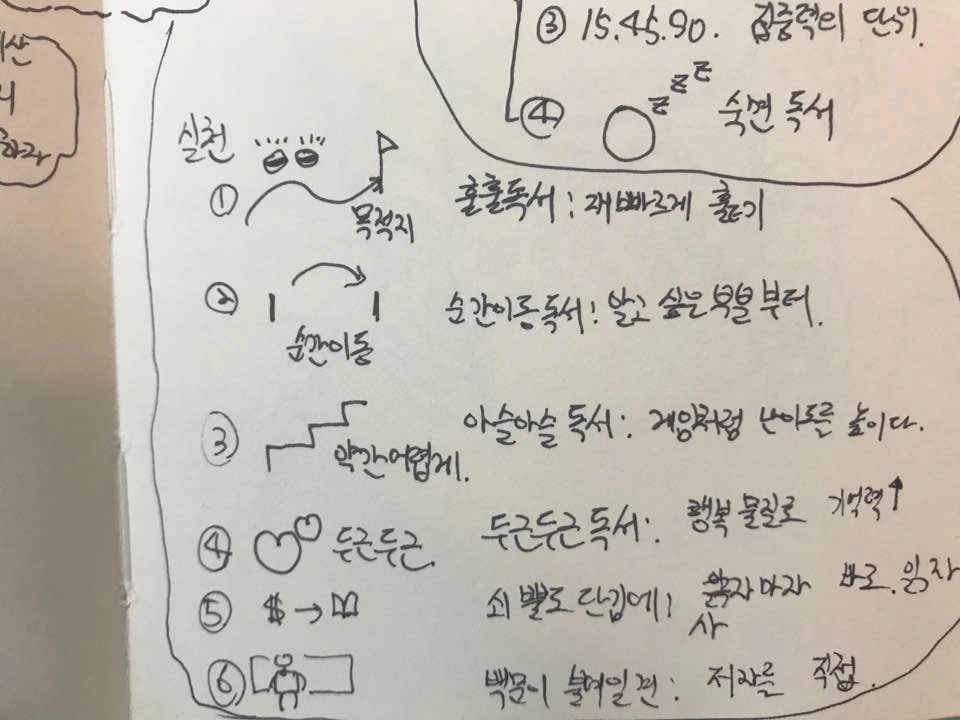 ③ 15.45.90. 집중력의 단위.
④ z z z 숙면 독서
실천
① 목적지 훌훌독서: 재빠르게 훑기
② 순간이동 순간이동독서: 알고 싶은 부분부터.
③ 약간어렵게. 아슬아슬 독서: 게임처럼 난이도를 높이다.
④ 두근두근. 두근두근 독서: 행복물질로 기억력↑
⑤ $ → 쇠뿔도 단김에: 사자마자 바로. 읽자
⑥ 백문이 불여일견: 저자를 직접.